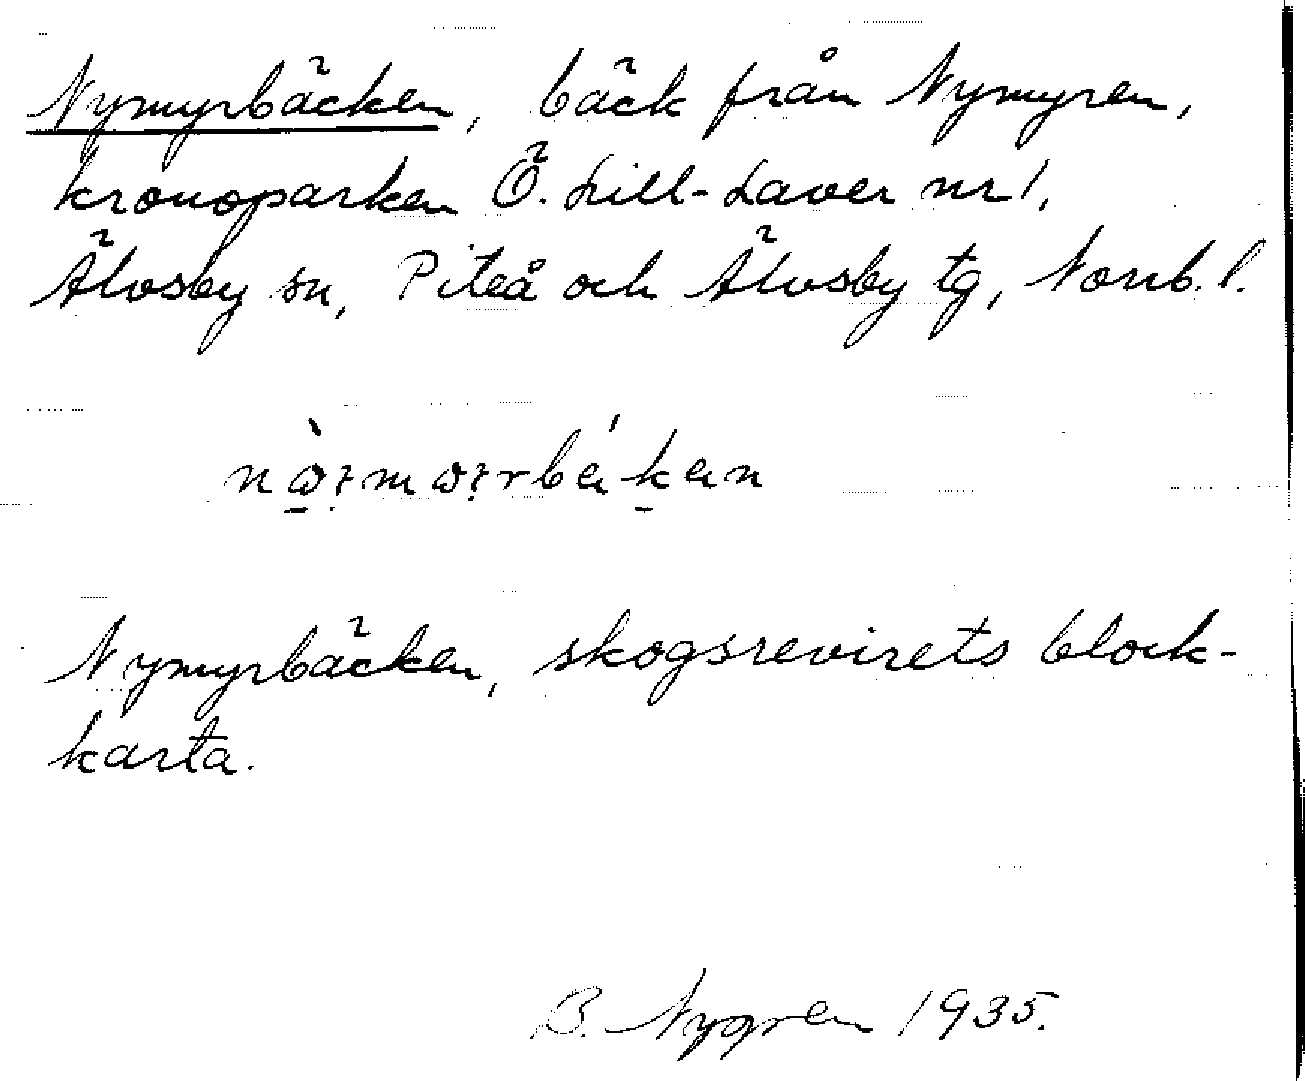 Nymyrbäcken, bäck från Nymyren,
kronoparken Ö. Lill-Laver nr 1,
Älvsby sn, Piteå och Älvsby tg, Norrb. l.
Nymyrbäcken, skogsrevirets block-
karta.
B. Nygren 1935.